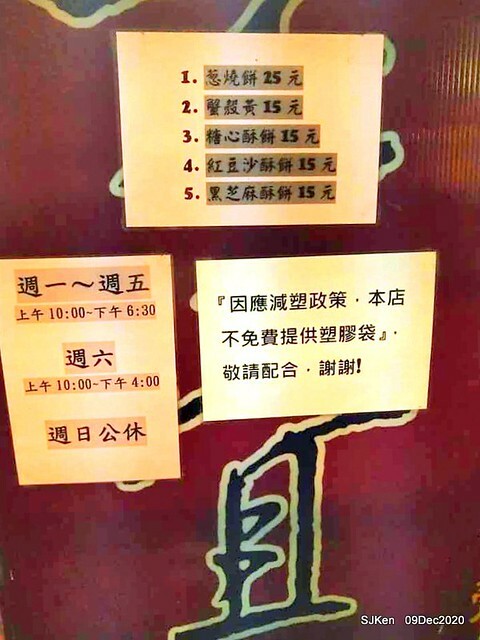 1. 蔥燒餅 25 元
2. 蟹殼黃 15 元
3. 糖心酥餅 15 元
4. 紅豆沙酥餅 15 元
5. 黑芝麻酥餅 15 元
週一～週五
上午 10:00~下午 6:30
週六
上午 10:00~下午 4:00
週日公休
『因應減塑政策，本店
不免費提供塑膠袋』.
敬請配合．謝謝!
SJKen 09Dec2020